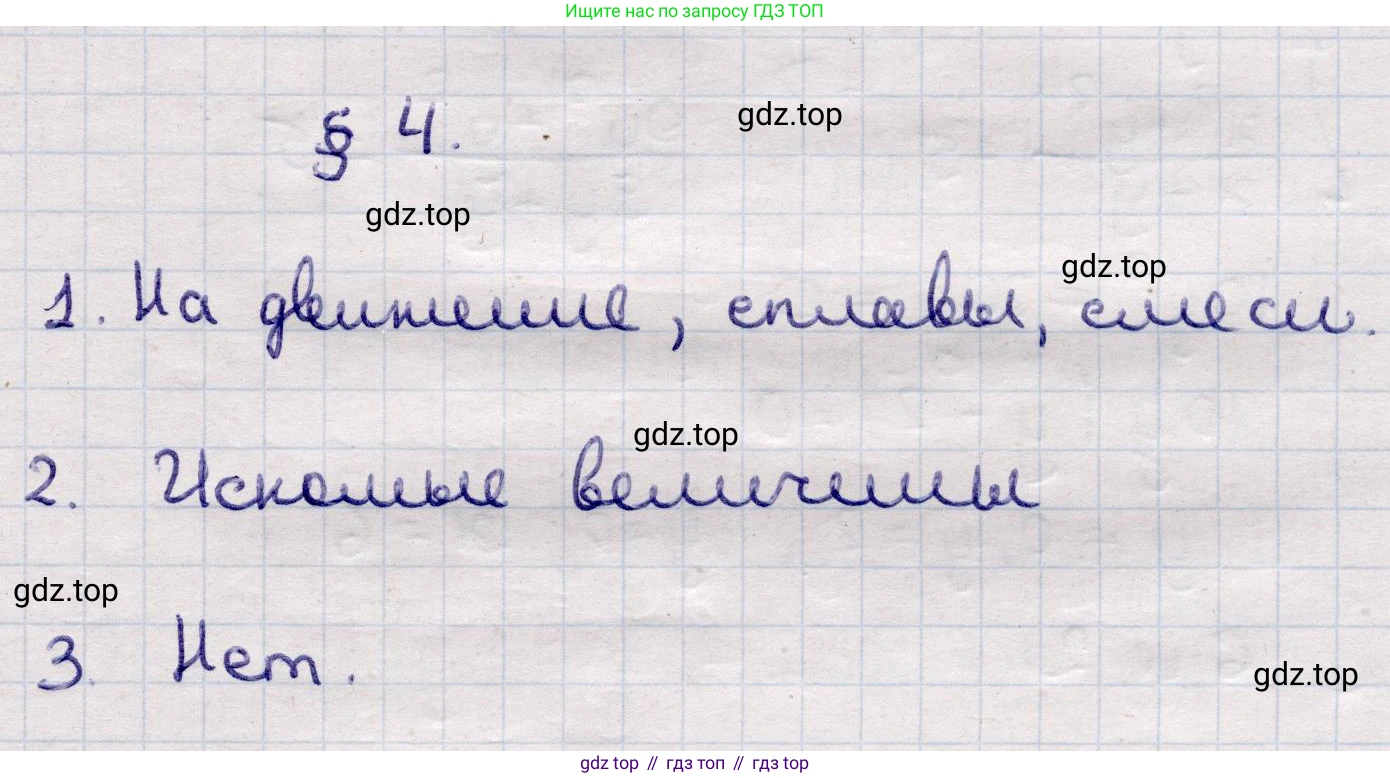 Ищите нас по запросу ГДЗ ТОП
§ 4.
gdz.top
gdz.top
gdz.top
1. На движение, сплавы, смеси.
gdz.top
2. Искомые величины
gdz.top
3. Нет.
gdz.top
gdz top // гдз топ // гдз top